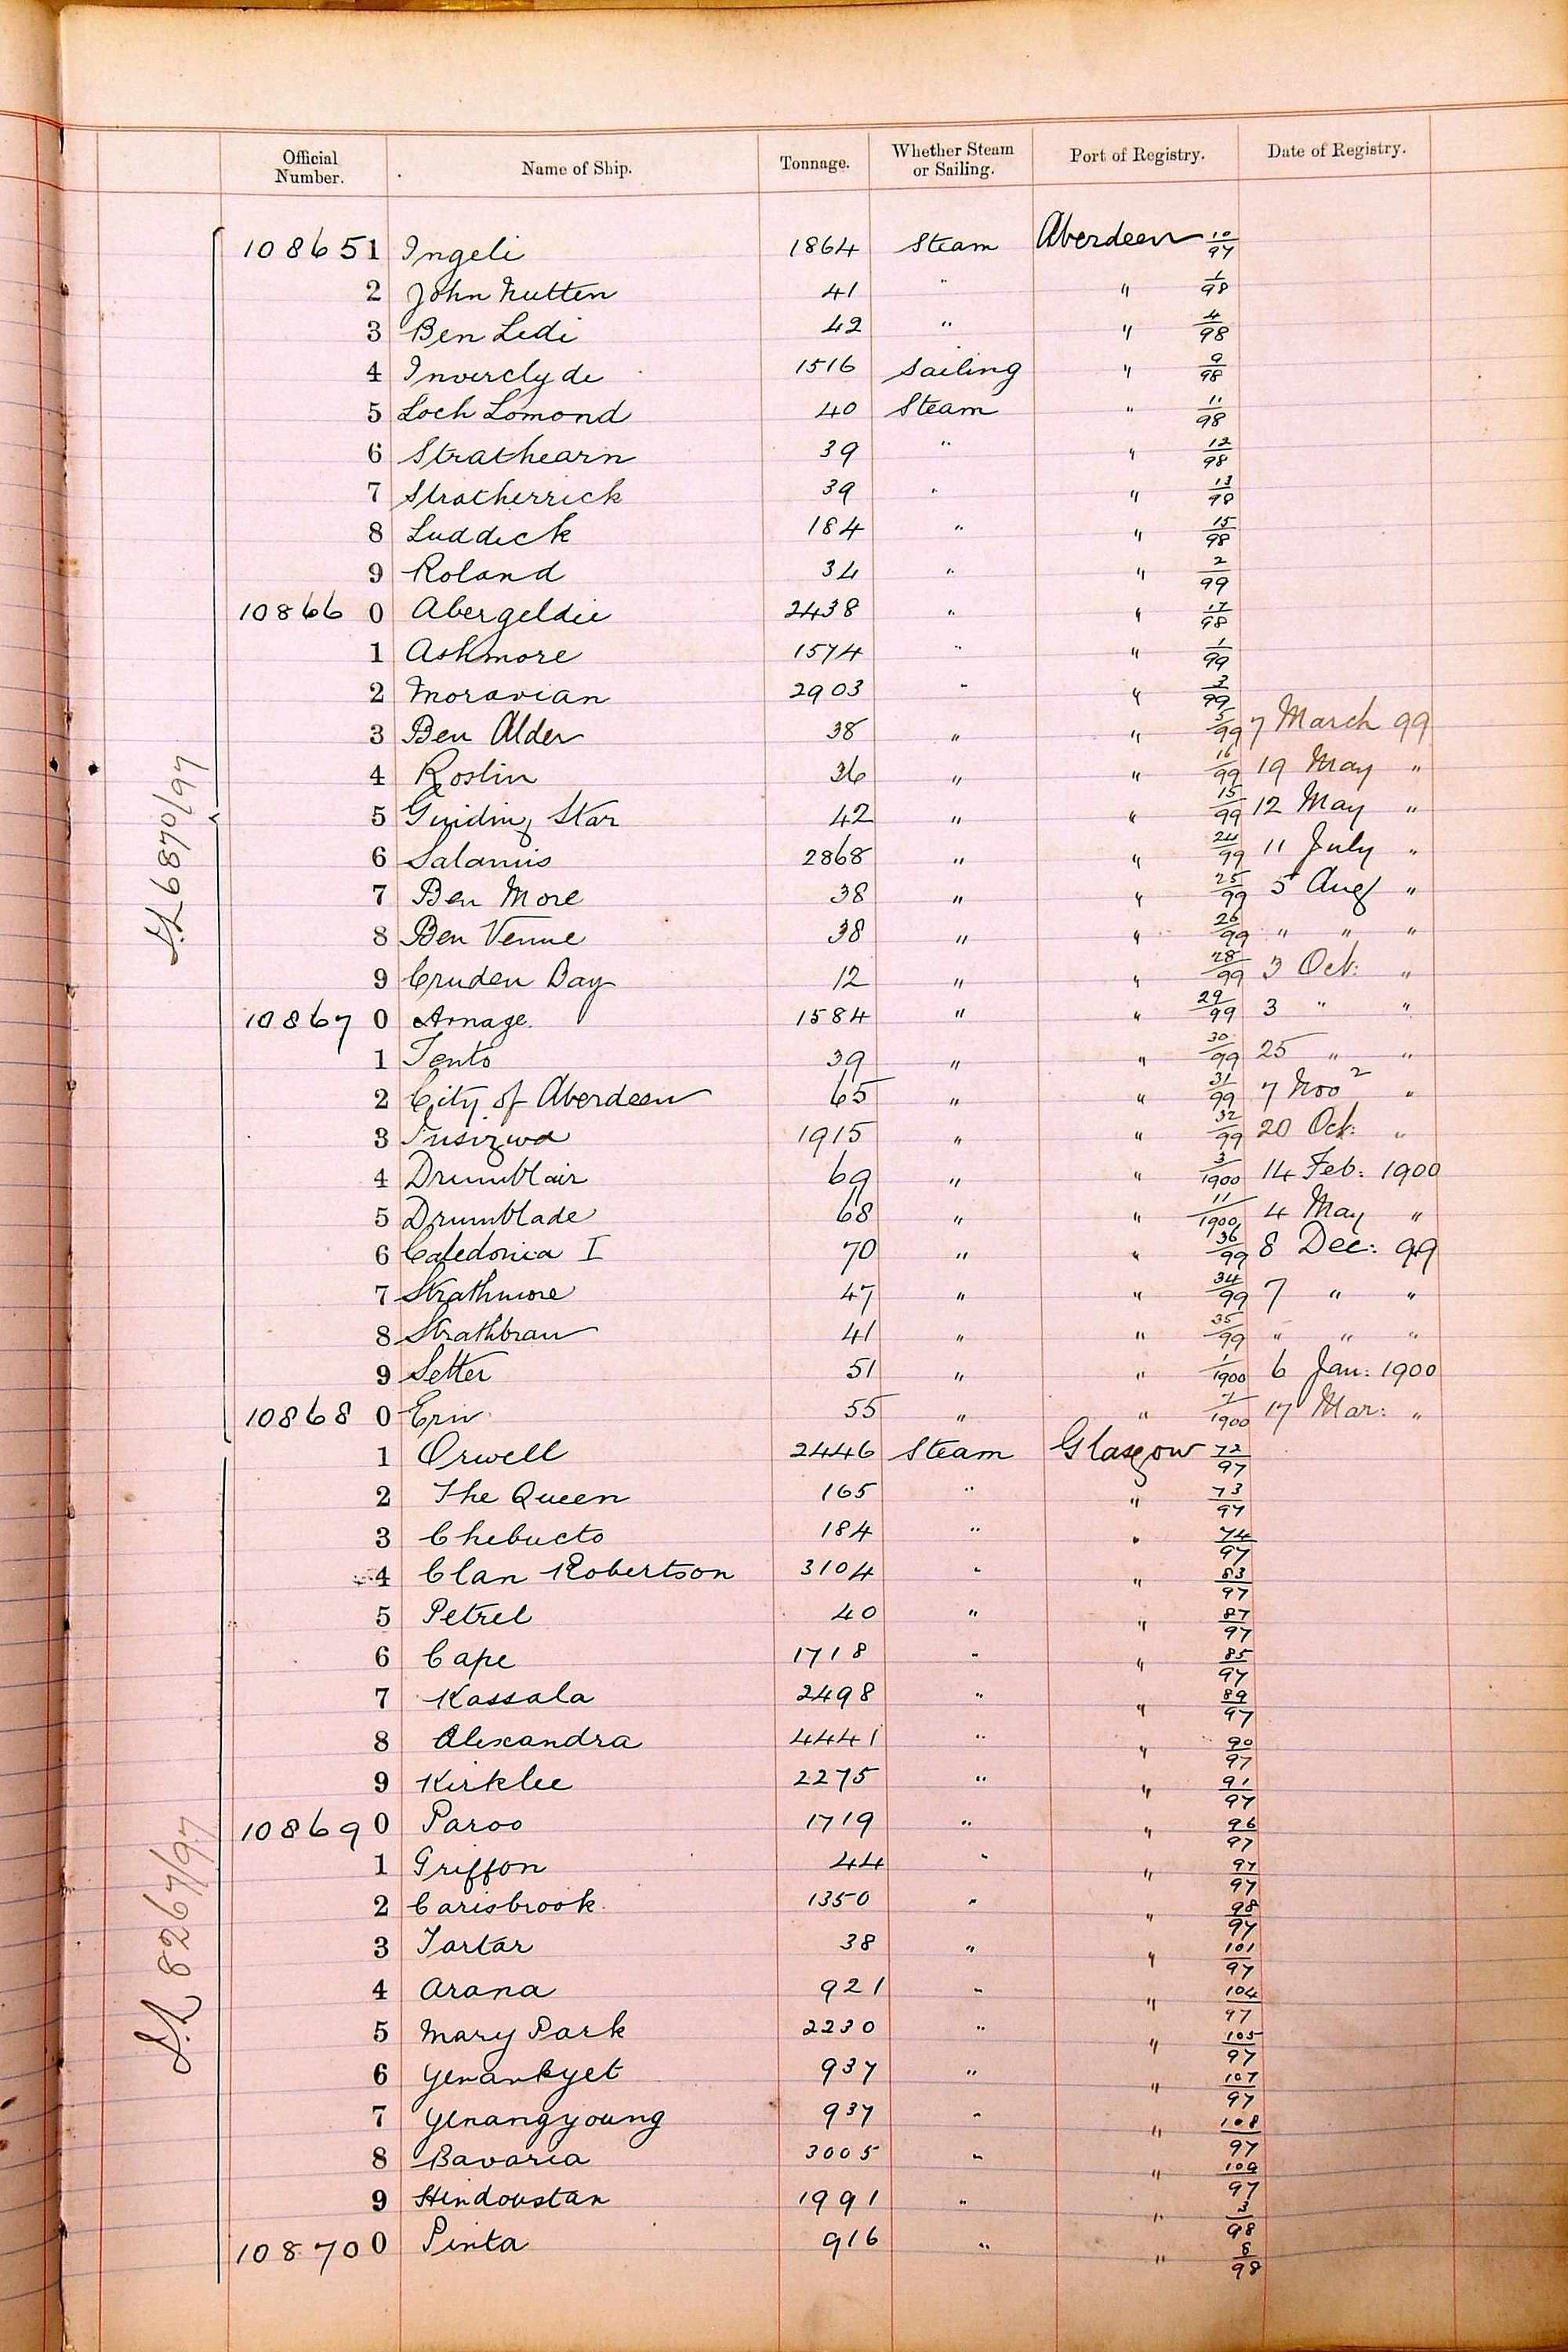 Official Number. Name of Ship. Tonnage. Whether Steam or Sailing. Port of Registry. Date of Registry.
108651 Ingeli 1864 Steam Aberdeen 10/97
2 John Nutten 41 " " 1/98
3 Ben Ledi 42 " " 4/98
4 Inverclyde 1516 Sailing " 9/98
5 Loch Lomond 40 Steam " 11/98
6 Strathearn 39 " " 12/98
7 Stratherrick 39 " " 13/98
8 Luddick 184 " " 15/98
9 Roland 34 " " 2/99
108660 Abergeldie 2438 " " 17/98
1 Ashmore 1574 " " 1/99
2 Moravian 2903 " " 3/99
3 Ben Alder 38 " " 5/99 7 March 99
4 Roslin 36 " " 16/99 19 May "
5 Guiding Star 42 " " 15/99 12 May "
6 Salamis 2868 " " 24/99 11 July "
7 Ben More 38 " " 25/99 5 Aug "
8 Ben Venue 38 " " 26/99 " " "
9 Cruden Bay 12 " " 28/99 3 Oct: "
108670 Arnage 1584 " " 29/99 3 " "
1 Tento 39 " " 30/99 25 " "
2 City of Aberdeen 65 " " 31/99 7 Nov "
3 Insizwa 1915 " " 32/99 20 Oct: "
4 Drumblair 69 " " 3/1900 14 Feb: 1900
5 Drumblade 68 " " 11/1900 4 May "
6 Caledonia I 70 " " 36/99 8 Dec: 99
7 Strathmore 47 " " 34/99 7 " "
8 Strathbran 41 " " 35/99 " " "
9 Setter 51 " " 1/1900 6 Jan: 1900
108680 Erin 55 " " 7/1900 17 Mar: "
1 Orwell 2446 Steam Glasgow 72/97
2 The Queen 165 " " 73/97
3 Chebucto 184 " " 74/97
4 Clan Robertson 3104 " " 83/97
5 Petrel 40 " " 87/97
6 Cape 1718 " " 85/97
7 Kassala 2498 " " 89/97
8 Alexandra 4441 " " 90/97
9 Kirklee 2275 " " 91/97
108690 Paroo 1719 " " 96/97
1 Griffon 44 " " 97/97
2 Carisbrook 1350 " " 98/97
3 Tartar 38 " " 101/97
4 Arana 921 " " 104/97
5 Mary Park 2230 " " 105/97
6 Yenankyet 937 " " 107/97
7 Yenangyoung 937 " " 108/97
8 Bavaria 3005 " " 109/97
9 Hindoustan 1991 " " 3/98
108700 Pinta 916 " " 8/98
6870/97
8267/97